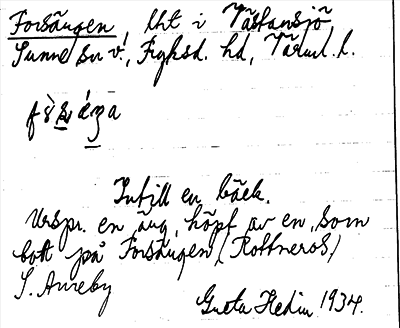 Forsängen, lht i Västansjö
Sunne sn v., Fryksd. hd, Värml. l.
Intill en bäck.
Urspr. en äng, köpt av en, som
bott på Forsängen (Rottneros)
S. Anneby
Greta Hedin 1934.